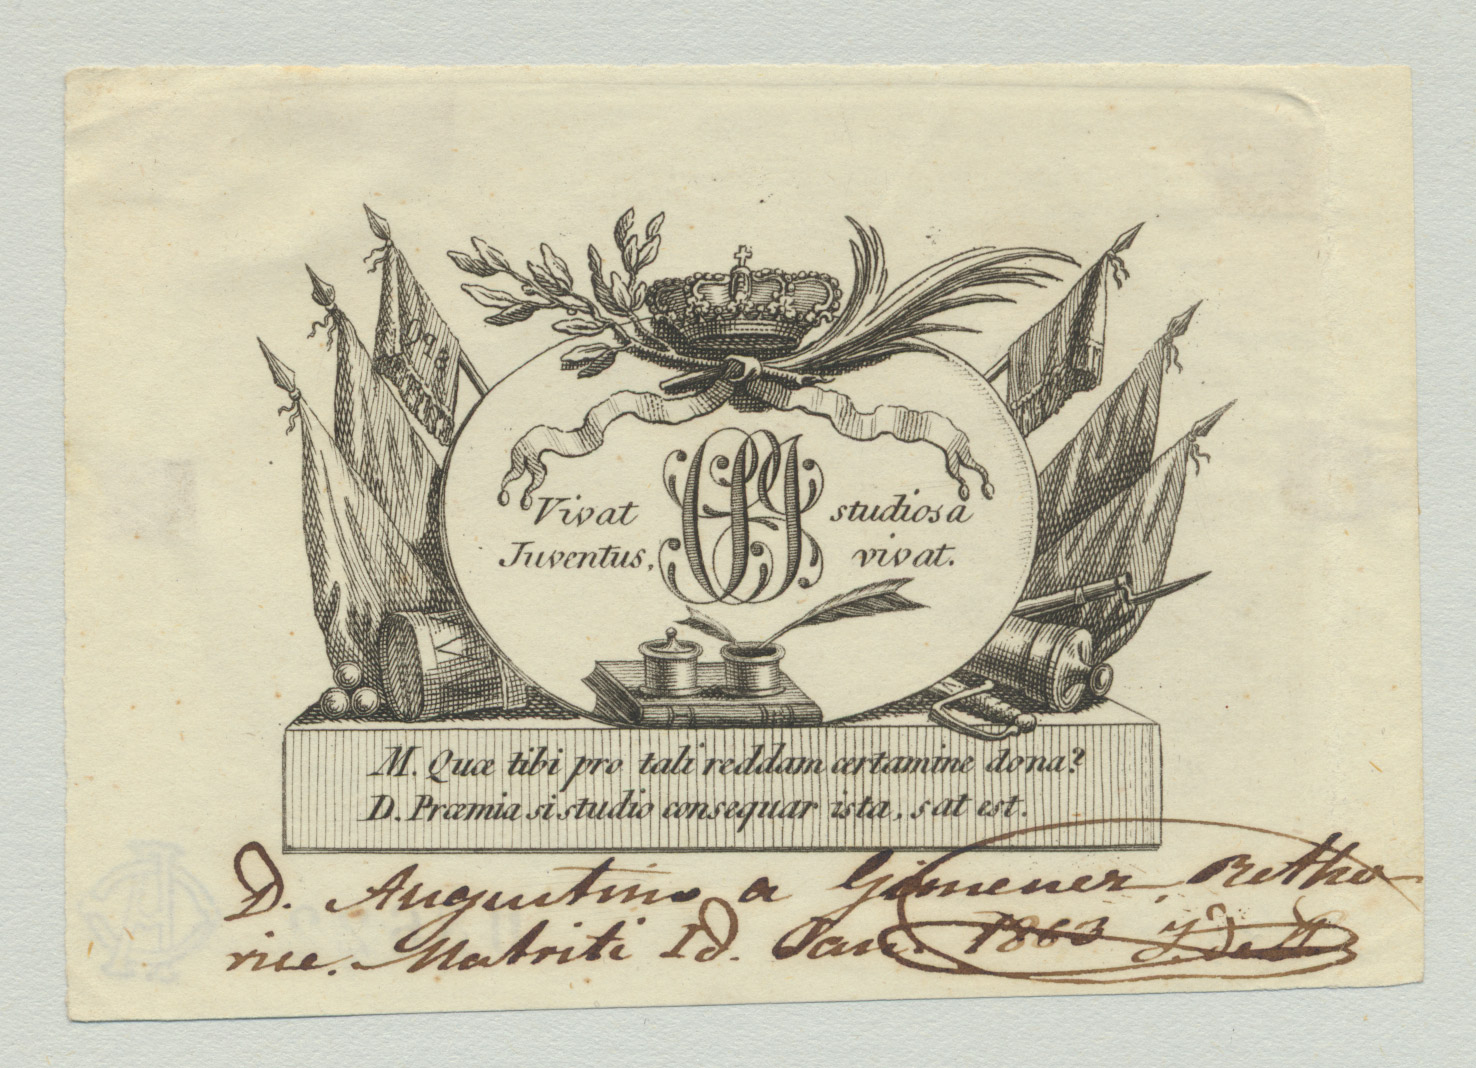 SPQR
Vivat studiosa
Juventus, vivat.
M. Quæ tibi pro tali reddam certamine dona?
D. Præmia si studio consequar ista, sat est.
D. Augustino a Gimenez Retho-
rice. Matriti Id. Jan. 1863